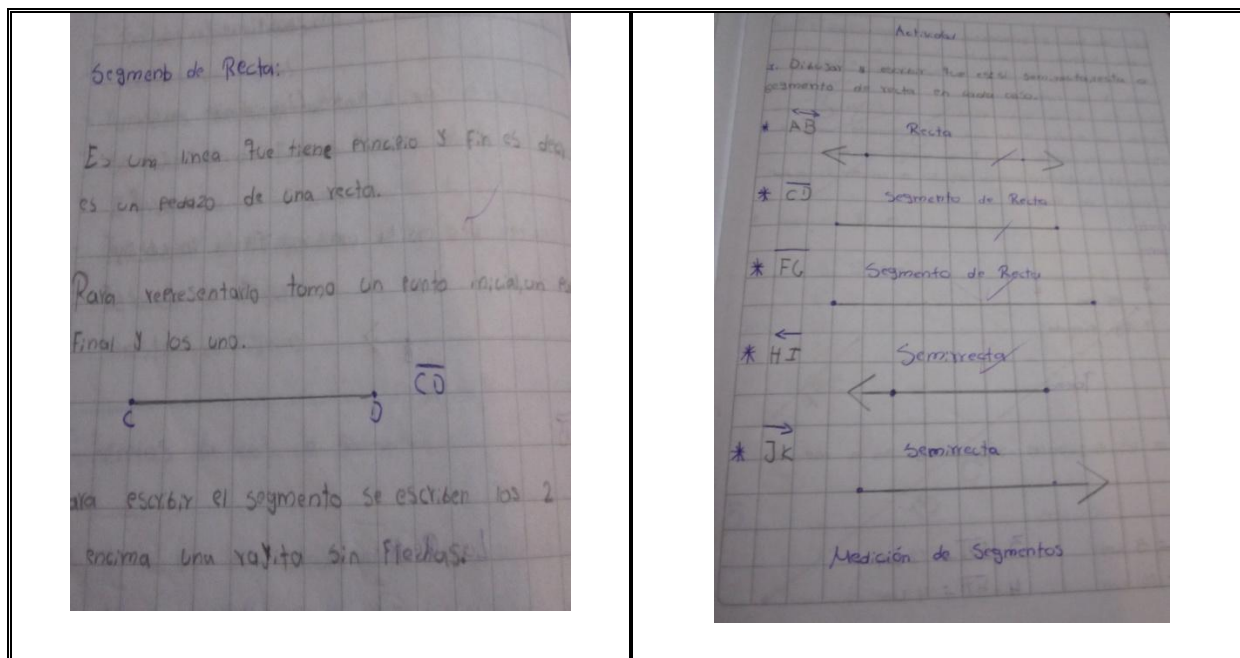 Segment de Recta:
Es una linea que tiene principio y fin es
es un pedazo de una recta.
Para representarlo tomo un punto inicial, un
final y los uno.
CD
C D
ara escribir el segmento se escriben los 2
encima una rayita sin flechas.
Actividad
1. Dibujar y
segmento de recta en cada caso.
* AB Recta
* CD Segmento de Recta
* FG Segmento de Recta
* HI Semirrecta
* JK Semirrecta
Medición de Segmentos